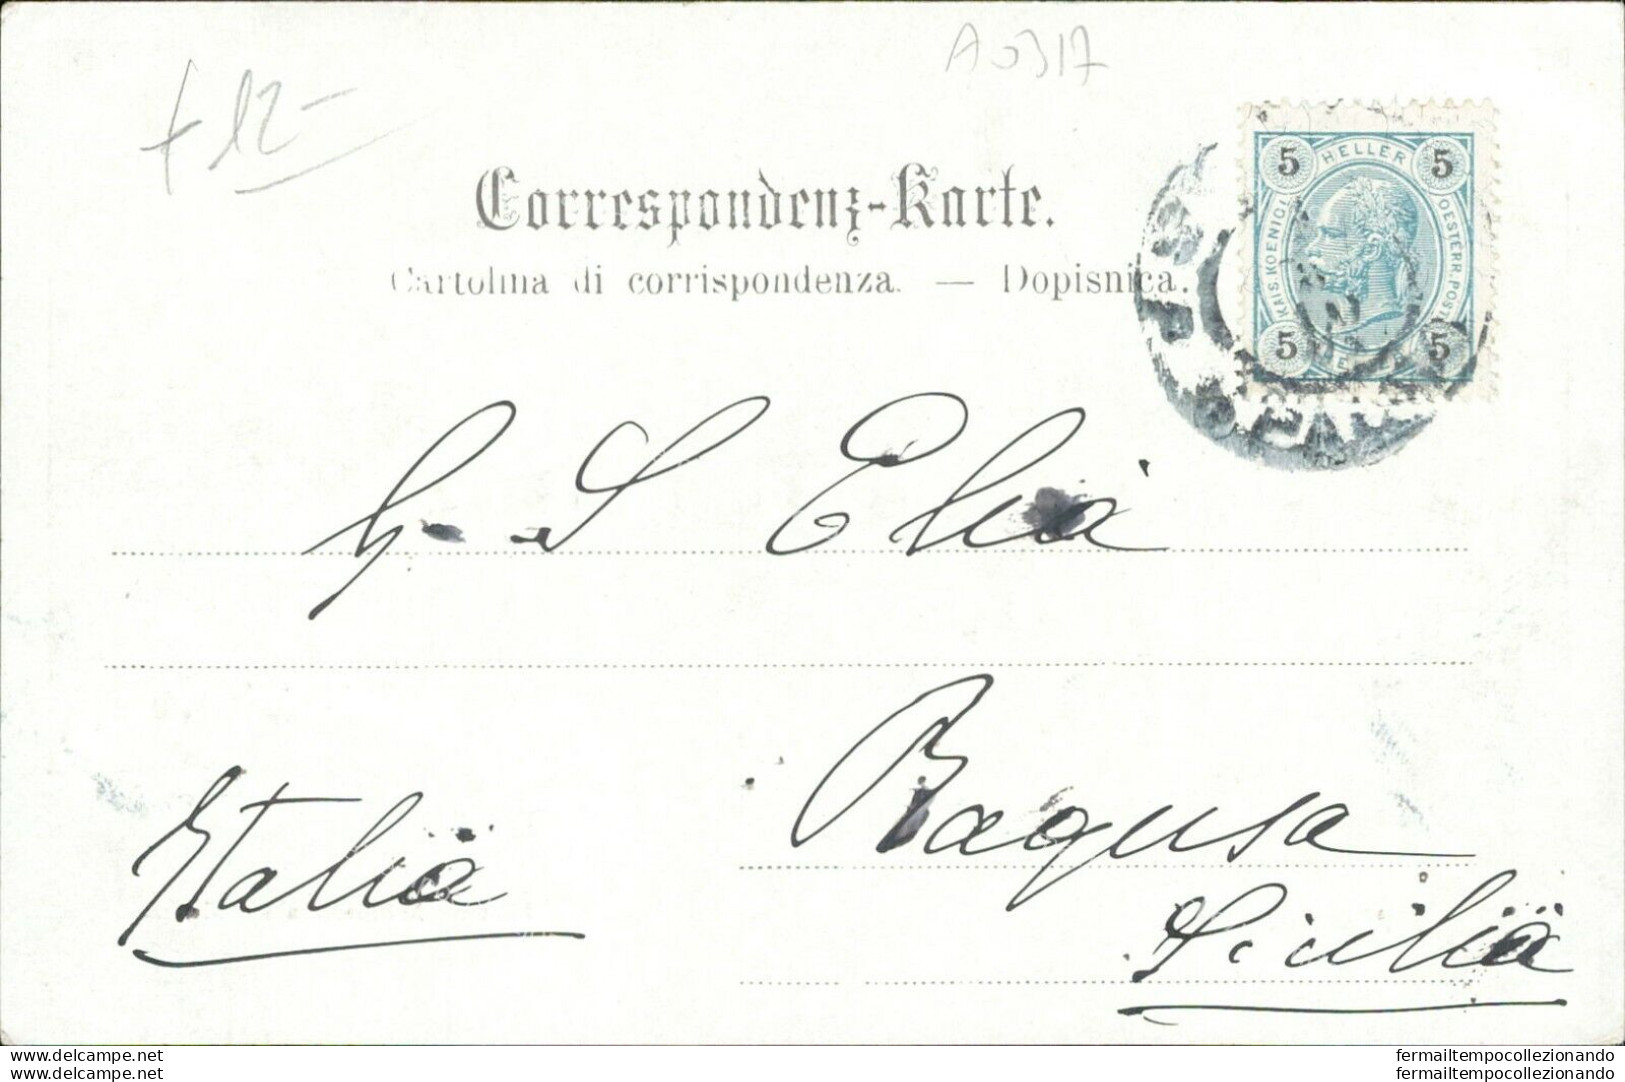 A0317
+ 12-
5 HELLER 5
KAIS. KOENIGL. OESTERR. POST
5 5
Correspondenz-Karte.
Cartolina di corrispondenza. — Dopisnica.
G. S. Elia
Ragusa
Italia
Sicilia
www.delcampe.net
www.delcampe.com
fermailtempocollezionando
fermailtempocollezionando